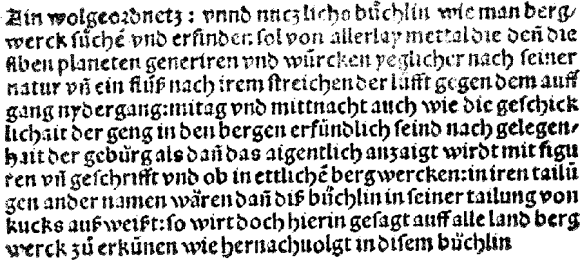 Ain wolgeordnetz : vnnd nuczlichs bůchlin wie man berg⸗
werck sůchē vnd erfinden sol von allerlay mettal die deñ die
siben planeten generiren vnd würcken yeglicher nach seiner
natur vñ ein fluß nach irem streichen der lüfft gegen dem auff
gang nydergang: mitag vnd mittnacht auch wie die geschick
lichait der geng in den bergen erfündlich seind nach gelegen⸗
hait der gebürg als dañ das aigentlich anzaigt wirdt mit figu
ren vñ geschrifft vnd ob in ettlichē bergwercken: in iren tailū
gen ander namen wären dañ diß bůchlin in seiner tailung von
kucks außweißt: so wirt doch hierin gesagt auff alle land berg
werck zů erkünen wie hernach uolgt in disem bůchlin